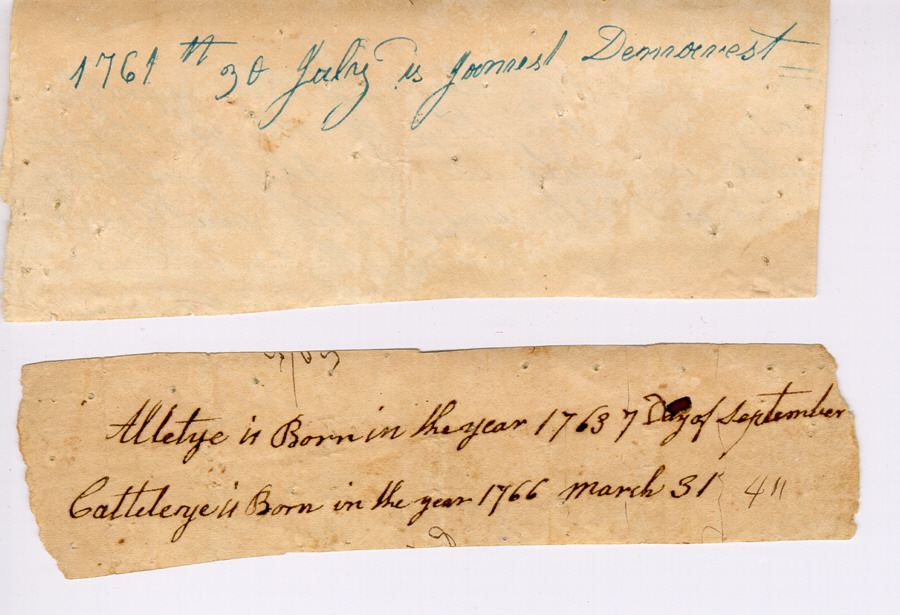 1761 th 30 July is Jamest Demarest
Alletye is Born in the year 1763 7 Day of September
Cattelenye is Born in the year 1766 march 31 4